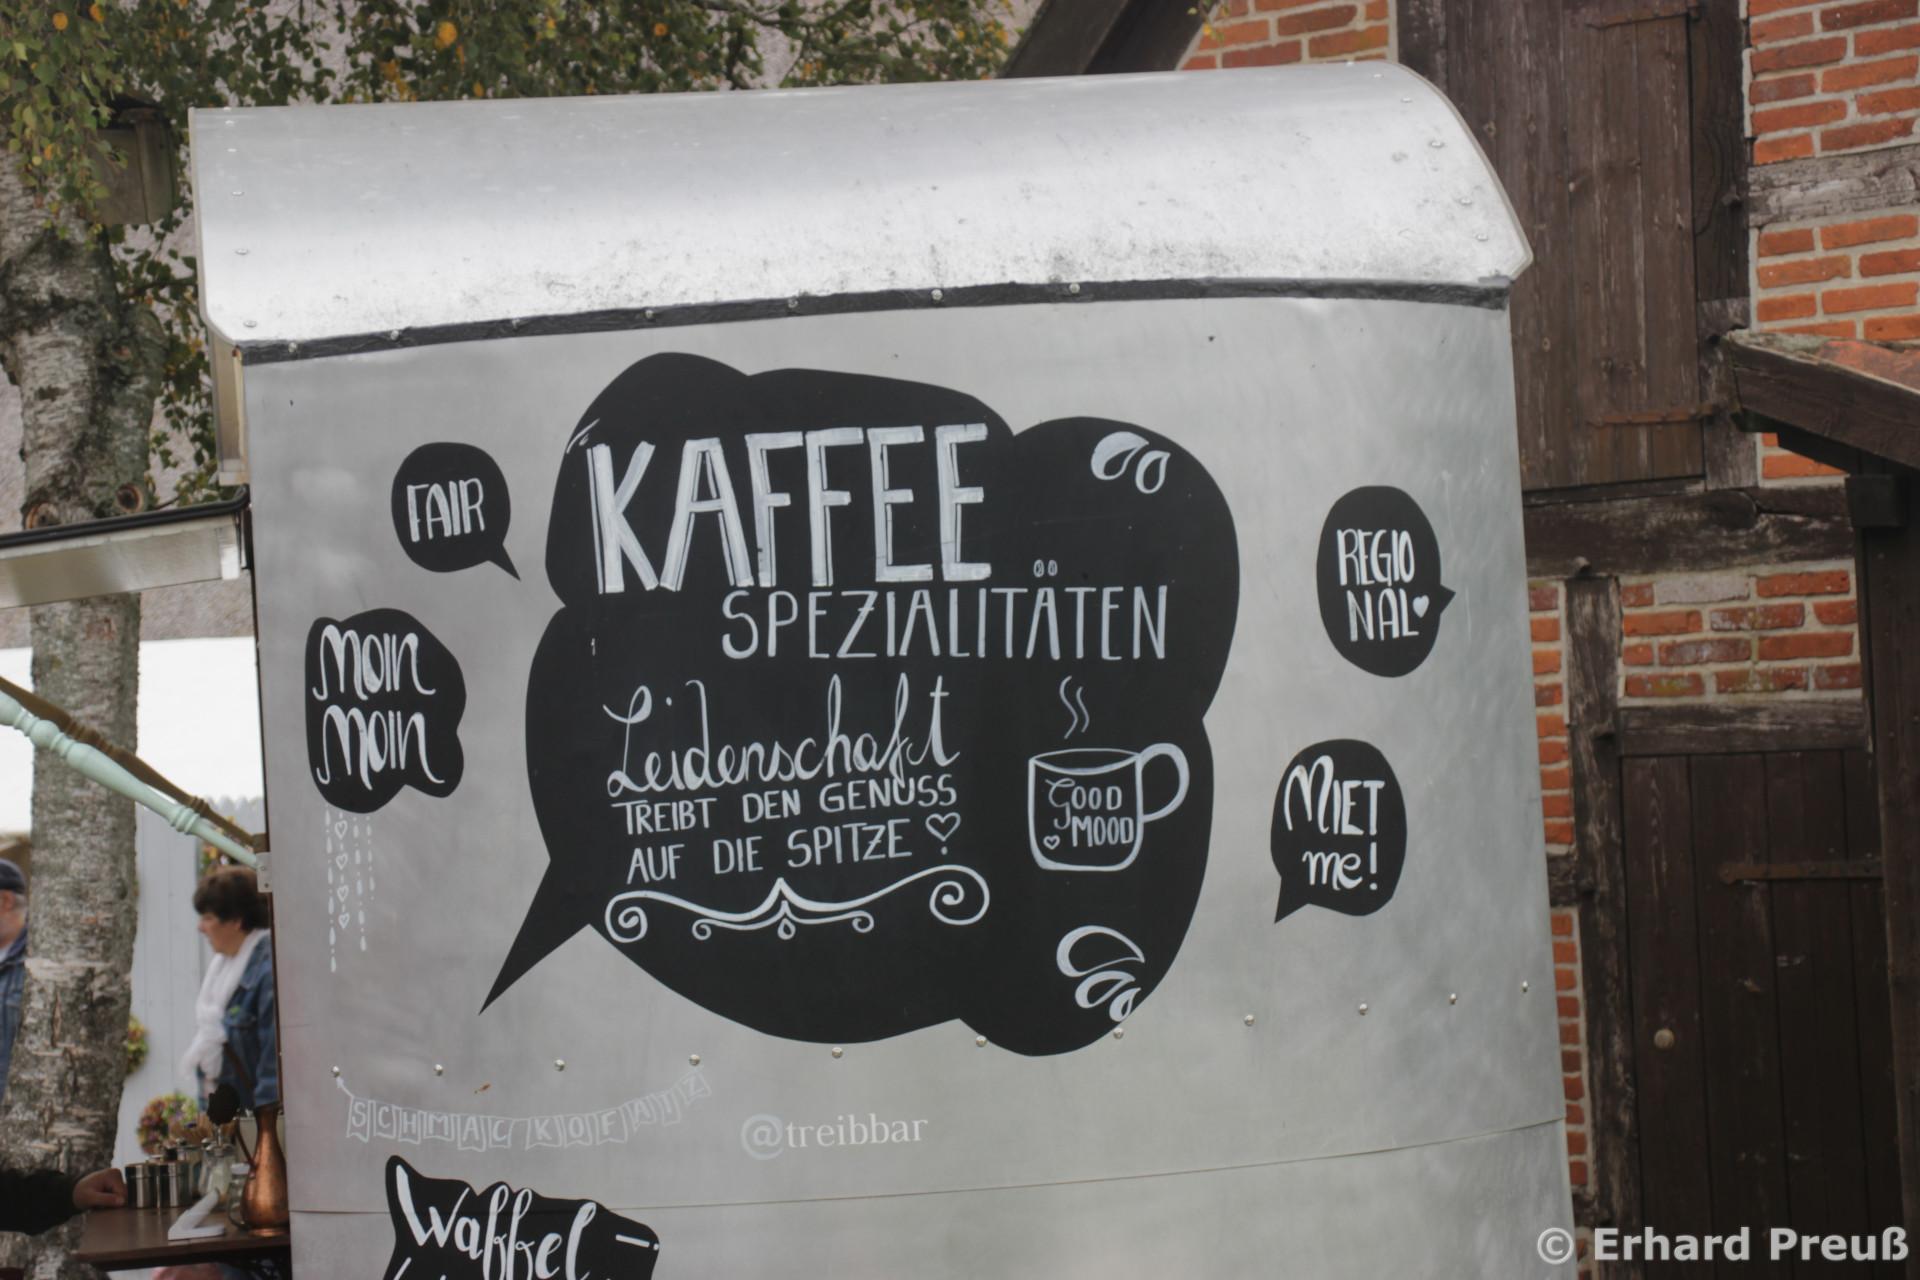 FAIR
MOIN
MOIN
KAFFEE
SPEZIALITÄTEN
Leidenschaft
TREIBT DEN GENUSS
AUF DIE SPITZE
GOOD
MOOD
REGIO
NAL
MIET
me!
SCHMACKOFATZ
@treibbar
Waffel-
© Erhard Preuß